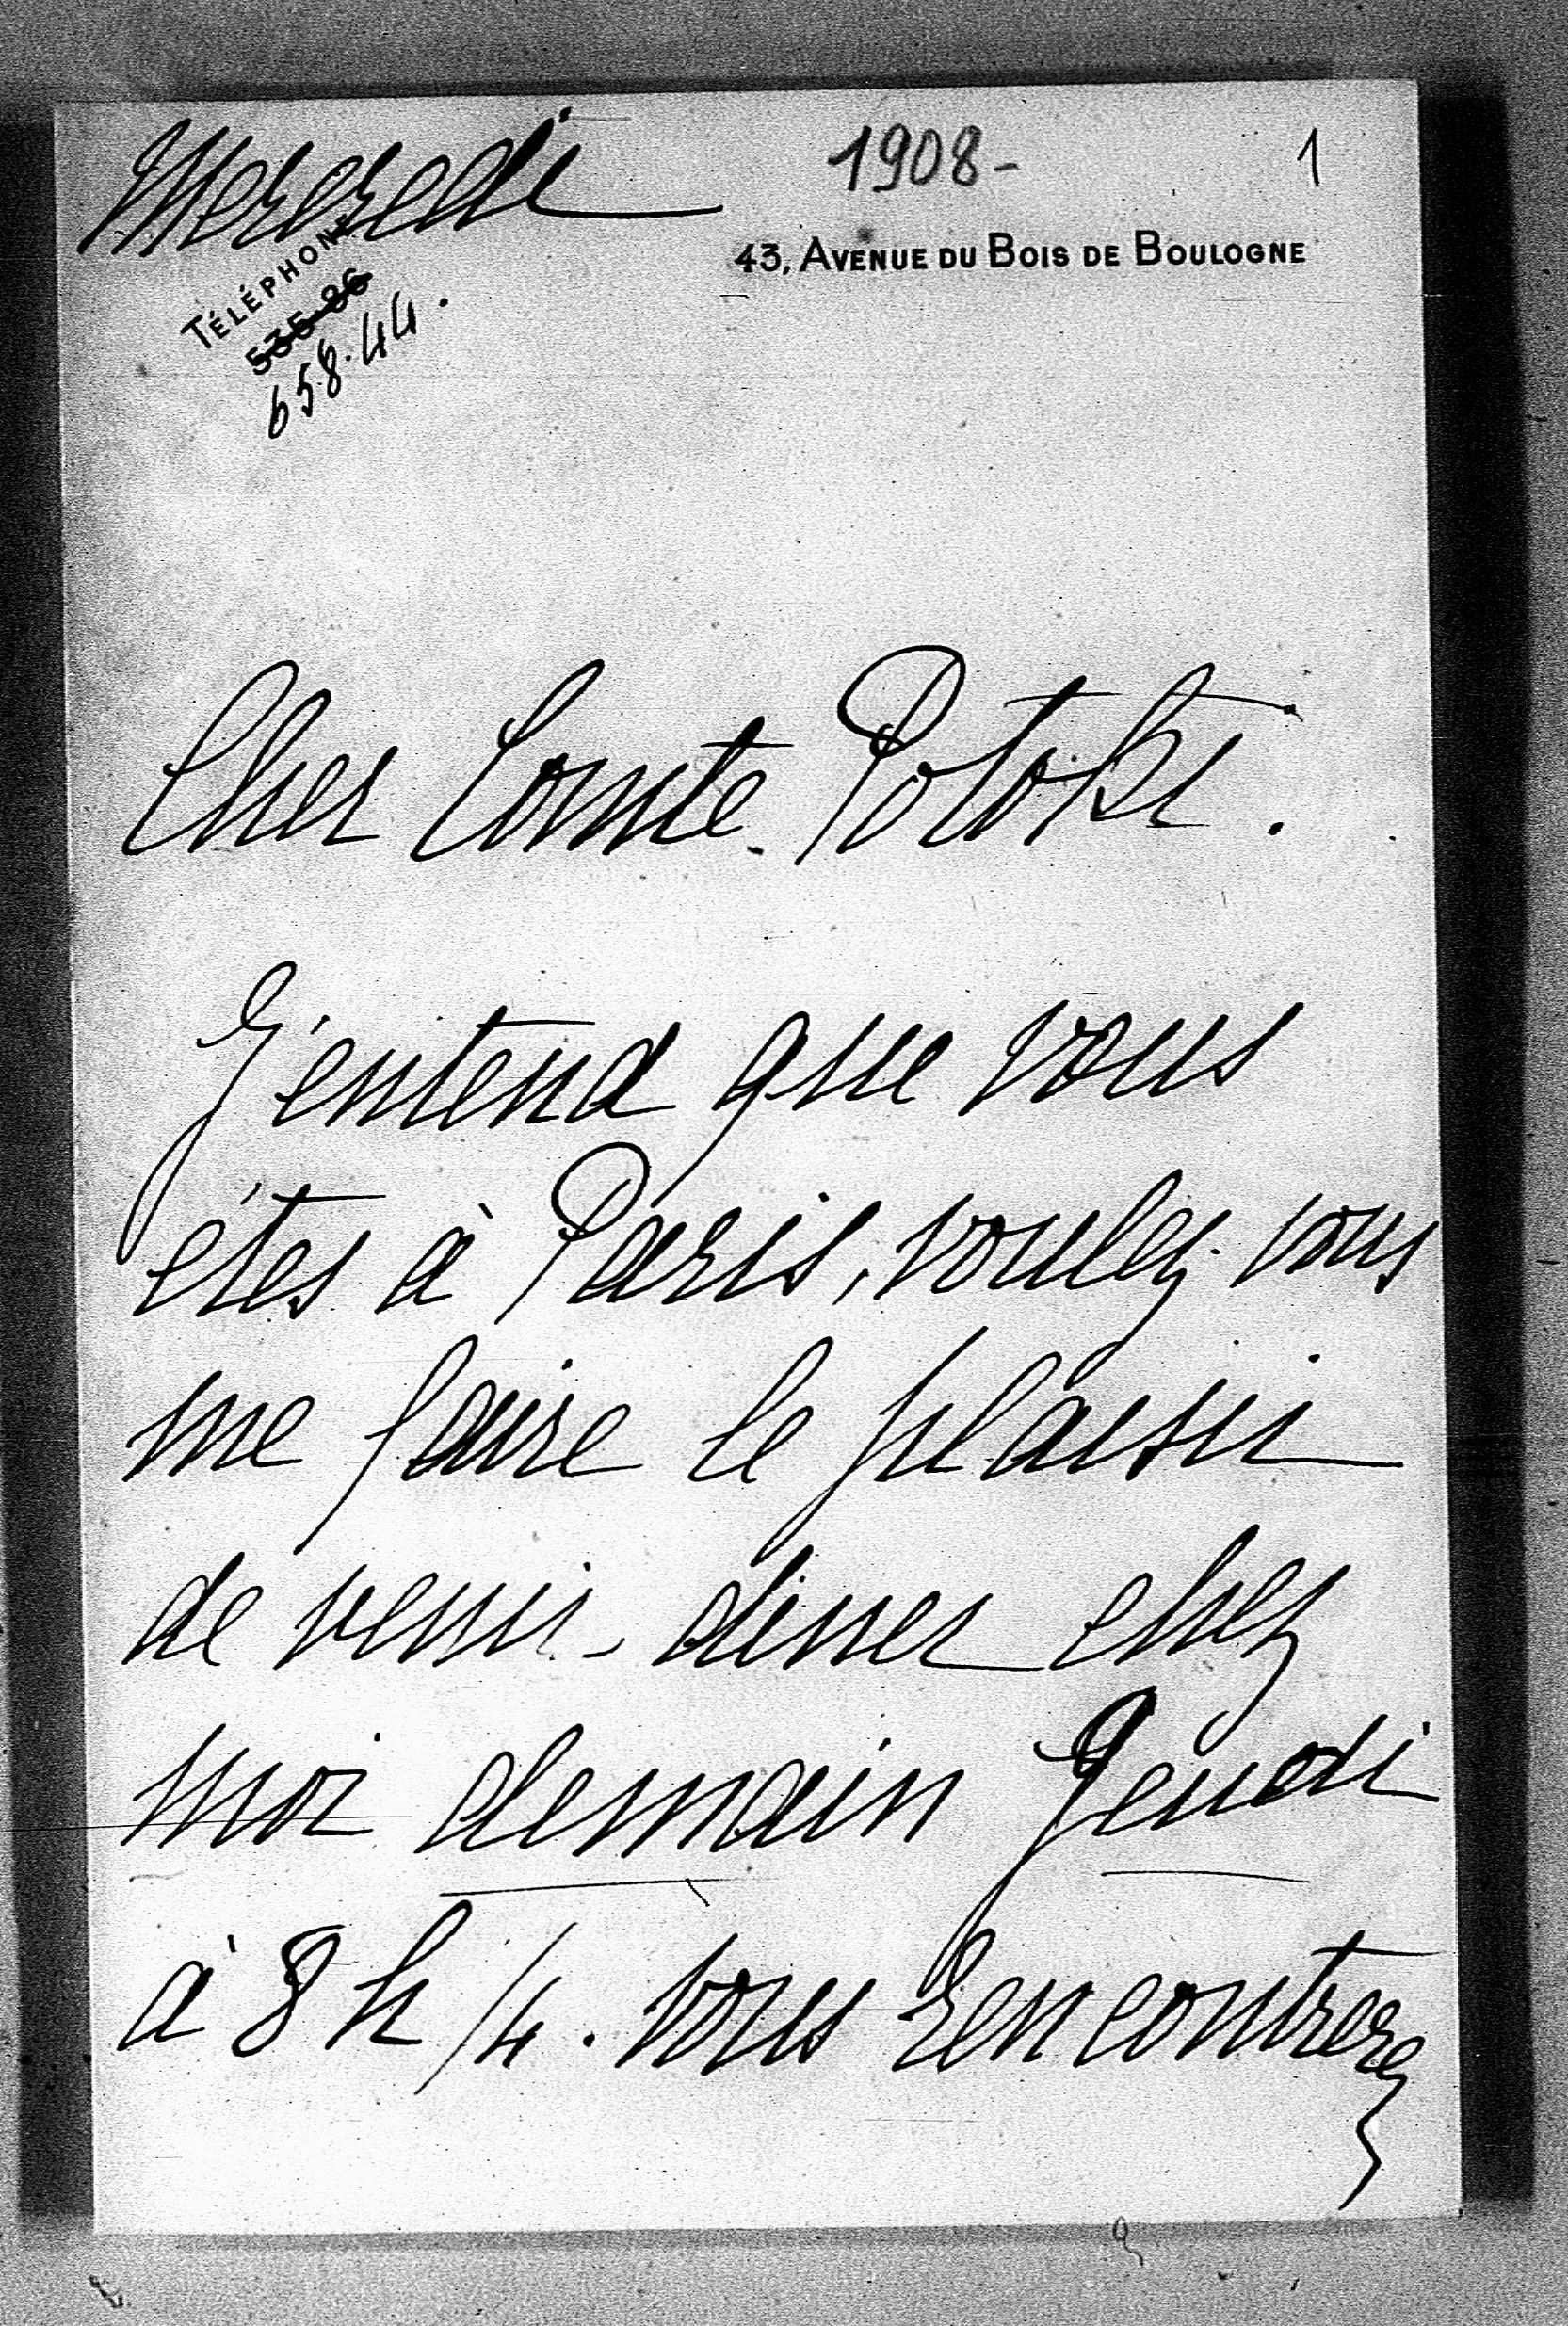 Mercredi
1908-
1
43, AVENUE DU BOIS DE BOULOGNE
TÉLÉPHONE
535-86
658.44.
Cher Comte Potoki.
J'entend que vous
êtes à Paris, voulez-vous
me faire le plaisir
de venir diner chez
moi demain Jeudi
à 8 h 1/4. Vous rencontrerez